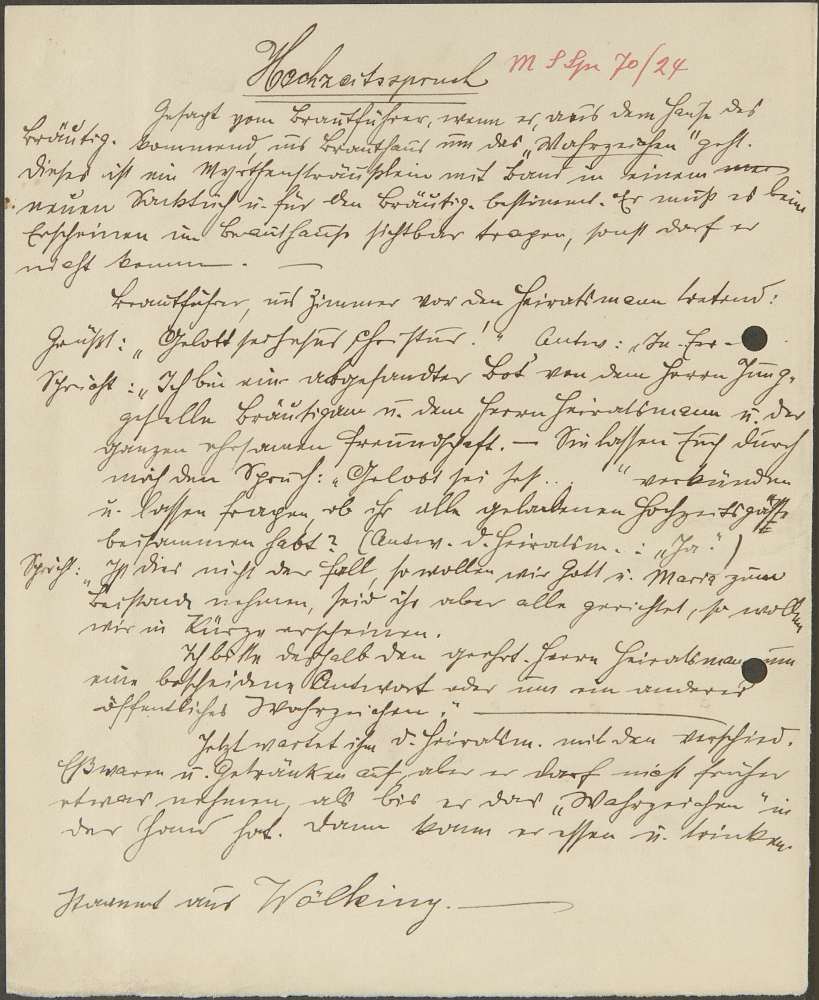 Hochzeitsspruch M S Spr 70/24
Gesagt vom Brautführer, wenn er, aus dem Hause des
Bräutig. kommend, ins Brauthaus um das „Wahrzeichen" geht.
Dieses ist ein Myrthensträußlein mit Band in einem
neuen Sacktuch u. für den Bräutig. bestimmt. Er muß es beim
Erscheinen im Brauthause sichtbar tragen, sonst darf er
nicht kommen. —
Brautführer, ins Zimmer vor den Heiratsmann tretend:
Grüßt: „Gelobt sei Jesus Christus!" Antw: „In Ew-
Spricht: „Ich bin ein abgesandter Bot von dem Herrn Jung-
geselle Bräutigam u. dem Herrn Heiratsmann u. der
ganzen ehrsamen Freundschaft. — Sie lassen Euch durch
mich den Spruch: „Gelobt sei Jes... " verkünden
u. lassen fragen, ob ihr alle geladenen Hochzeitsgäste
beisammen habt? (Antw. d. Heiratsm.: „Ja.")
Spricht: „Ist dies nicht der Fall, so wollen wir Gott u. Maria zum
Beistand nehmen, seid ihr aber alle gerichtet, so wollen
wir in Kürze erscheinen.
Ich bitte deshalb den geehrt. Herrn Heiratsmann um
eine bescheidene Antwort oder um ein anderes
öffentliches Wahrzeichen." —
Jetzt wartet ihm d. Heiratsm. mit den verschied.
Eßwaren u. Getränken auf, aber er darf nicht früher
etwas nehmen, als bis er das „Wahrzeichen" in
der Hand hat. Dann kann er essen u. trinken.
Stammt aus Wölking. —